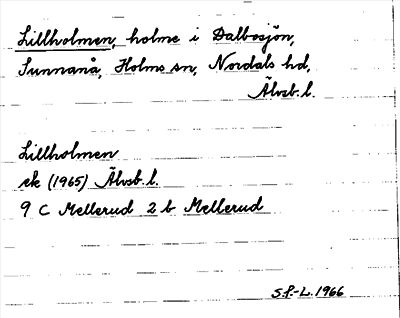 Lillholmen, holme i Dalbosjön,
Sunnanå, Holms sn, Nordals hd,
Älvsb. l.
Lillholmen
ek (1965) Älvsb. l.
9 C Mellerud 2 b Mellerud
S.f.-L. 1966